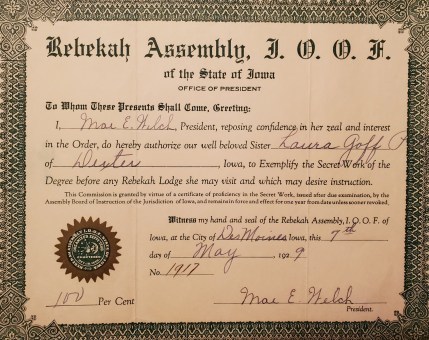 Rebekah Assembly, I. O. O. F.
of the State of Iowa
OFFICE OF PRESIDENT
To Whom These Presents Shall Come, Greeting:
I, Mae E. Welch, President, reposing confidence in her zeal and interest
in the Order, do hereby authorize our well beloved Sister Laura Goff P
of Dexter, Iowa, to Exemplify the Secret Work of the
Degree before any Rebekah Lodge she may visit and which may desire instruction.
This Commission is granted by virtue of a certificate of proficiency in the Secret Work, issued after due examination, by the
Assembly Board of Instruction of the Jurisdiction of Iowa, and remains in force and effect for one year from date unless sooner revoked.
Witness my hand and seal of the Rebekah Assembly, I. O. O. F. of
Iowa, at the City of Des Moines Iowa, this 7th
day of May, 1929
No. 1917
100 Per Cent
Mae E. Welch
President.